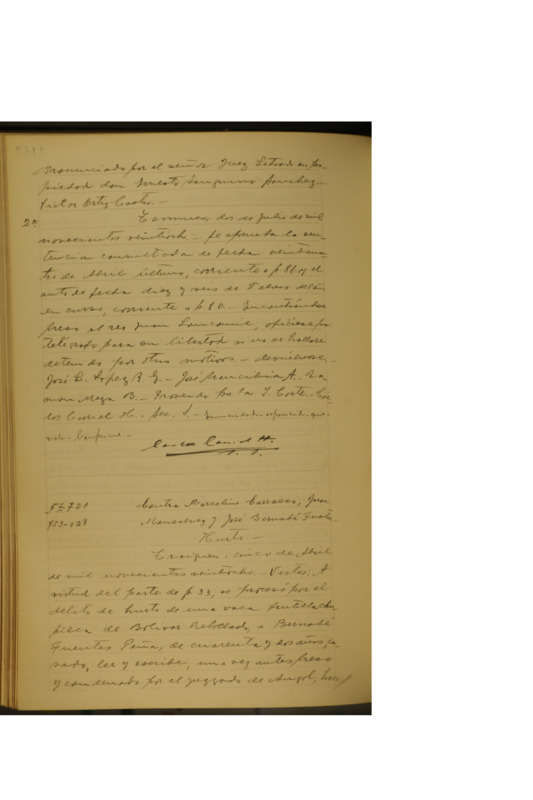 Pronunciada por el señor Juez Letrado en pro-
piedad don Ernesto Sanguino Sanchez.-
Victor Ortiz Castro.-
2a
Temuco, dos de Julio de mil
novecientos veintiocho.- Se aprueba la sen-
tencia consultada de fecha veinticua-
tro de Abril último, corriente a f 86 y el
auto de fecha diez y seis de Febrero
en curso, corriente a f 80.- Encontrándose
preso el reo Juan, ofíciese por
telégrafo para su libertad si no se hallare
detenido por otros motivos.- Devuélvase.-
José D. Lopez R. G.- José Francibia A. Ra-
mon Meza B.- Proveido por la I. Corte.- Car-
los H.- Sec. S.-
vale. Conforme.-
Carlos H.
S. S.
Contra Marcelino Carrasco, Juan
y José Bernabé Fuentes
Hurto.-
Traiguen, cinco de Abril
de mil novecientos veintiocho.- Vistos: A
virtud del parte de f 33, se procesó por el
delito de hurto de una vaca
de Bolivar Rebolledo, a Bernabé
Fuentes Peña, de cuarenta y dos años, ca-
sado, lee y escribe, una vez antes preso
y condenado por el juzgado de Angol,